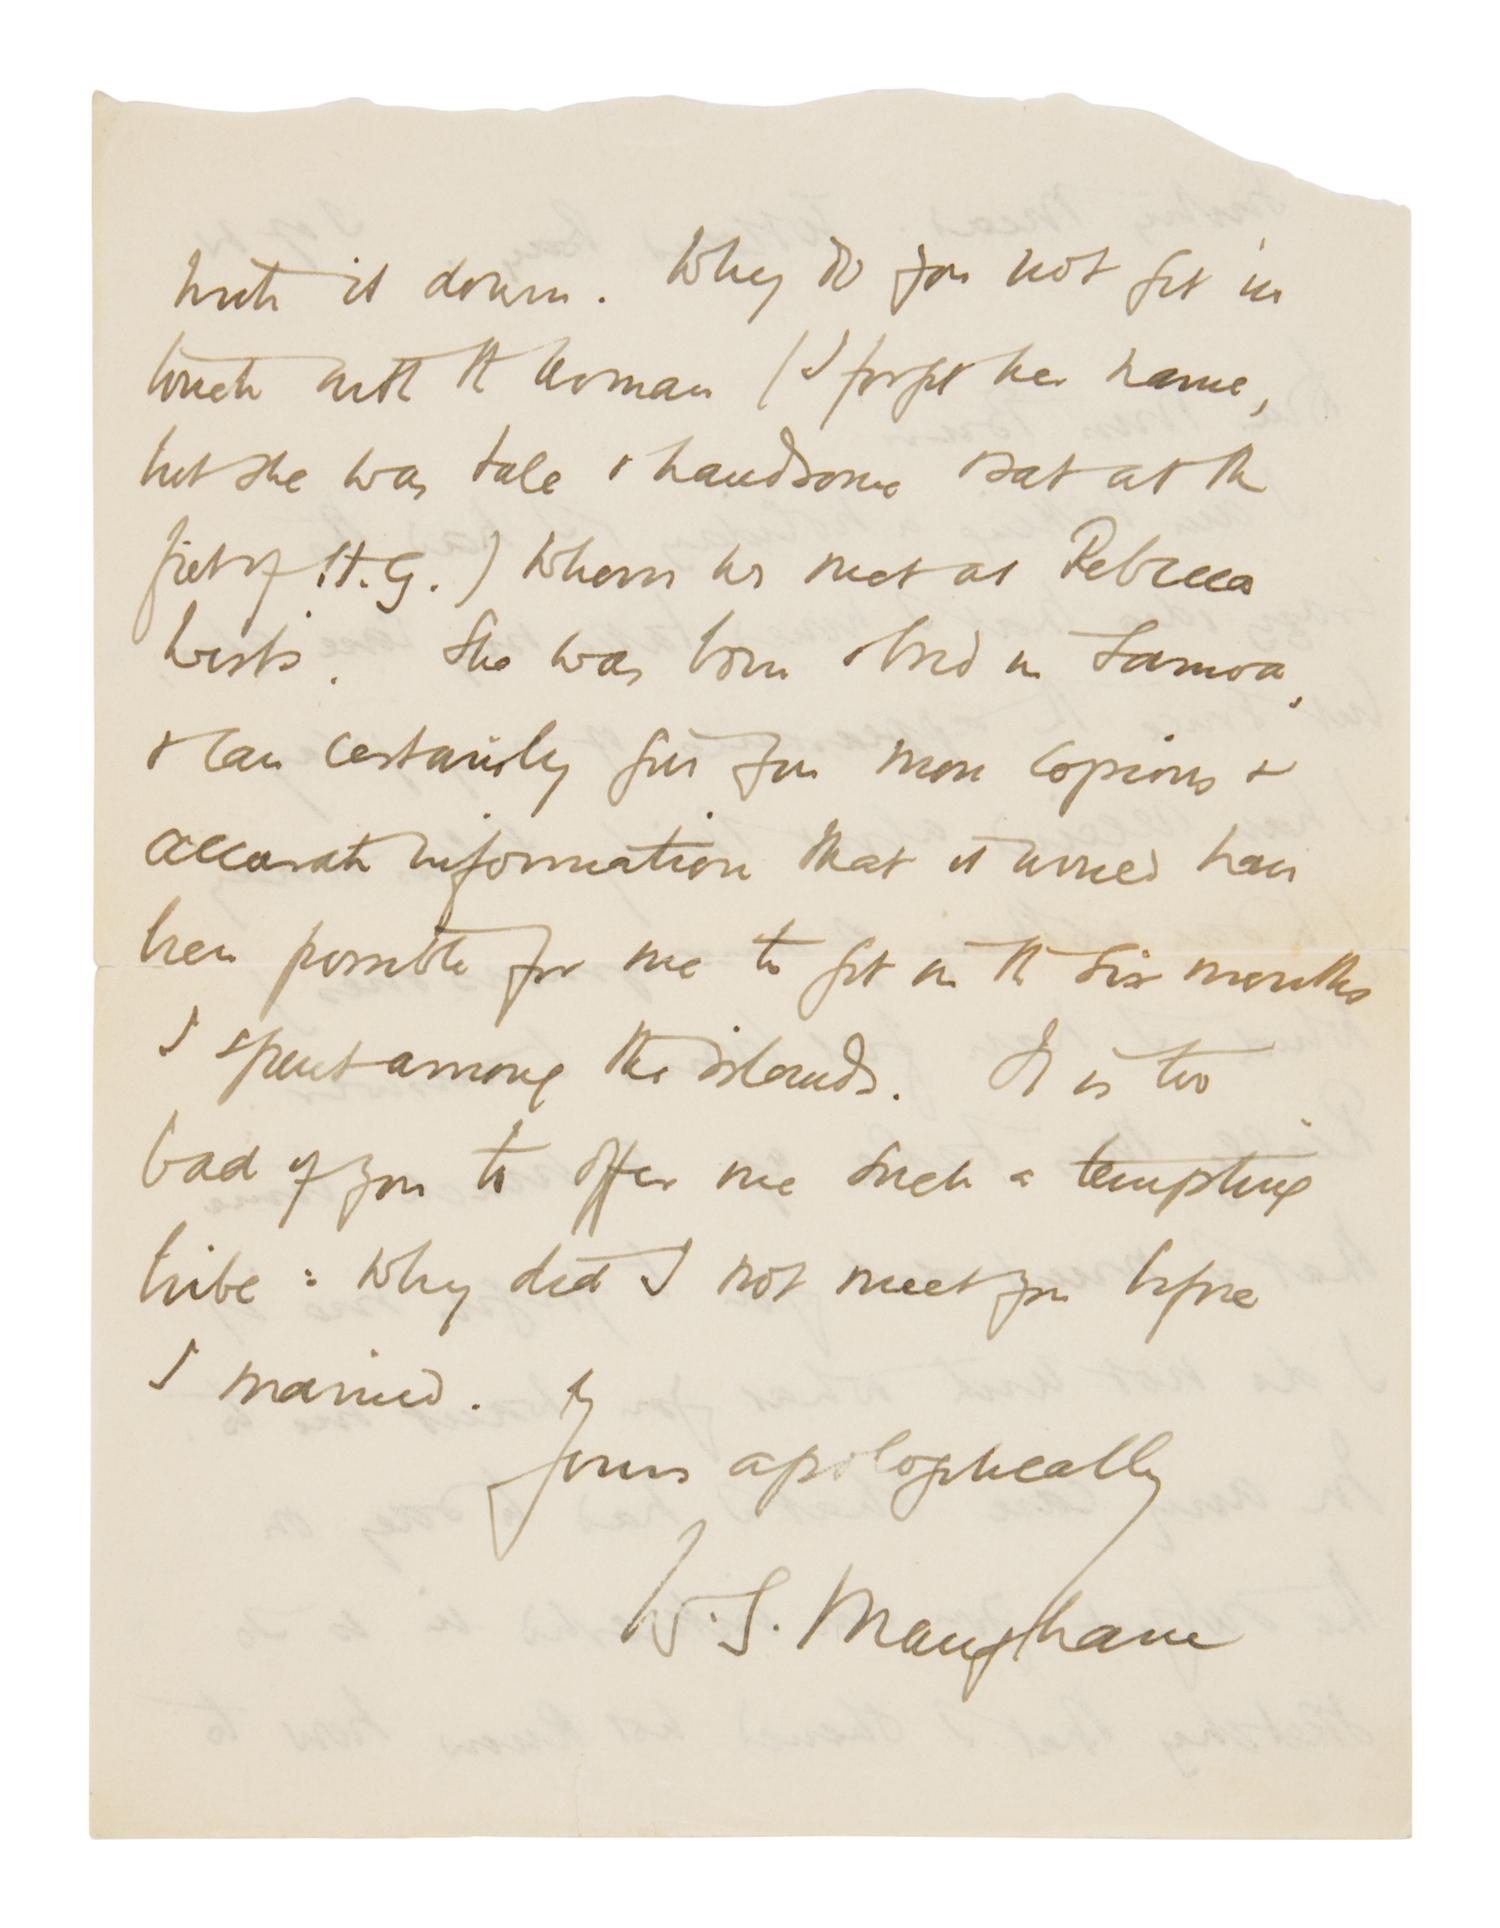 write it down. Why do you not get in
touch with the woman (I forget her name,
but she was tale & handsome & sat at the
feet of H.G.) whom we met at Rebecca
Wests. She was born & bred in Samoa,
& can certainly give you more copious &
accurate information that it would have
been possible for me to get in the six months
I spent among the islands. It is too
bad of you to offer me such a tempting
bribe: why did I not meet you before
I married.
Yours apologetically
W.S. Maugham